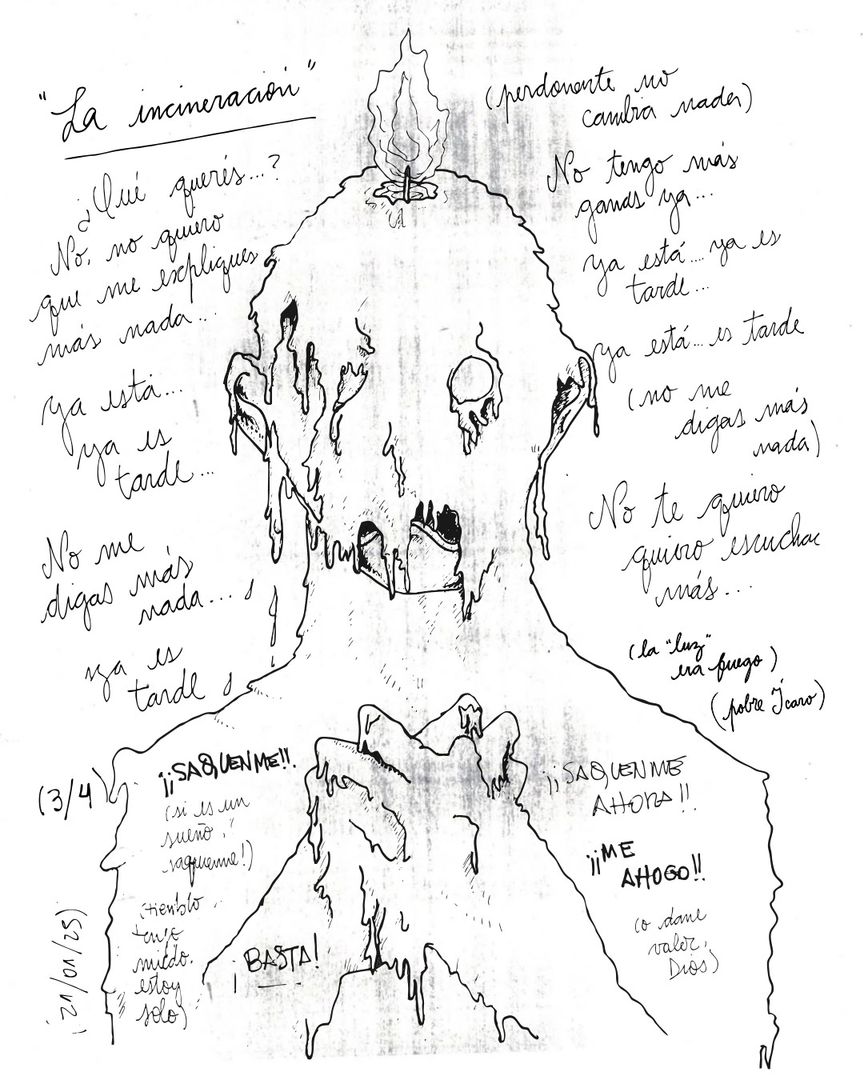 "La incineración"
¿Qué querés...?
No, no quiero
que me expliques
más nada...
ya está...
ya es
tarde...
No me
digas más
nada...
ya es
tarde
(perdonarte no
cambia nada)
No tengo más
ganas ya...
ya está... ya es
tarde...
ya está... es tarde
(no me
digas más
nada)
No te quiero
quiero escuchar
más...
(la "luz"
era fuego)
(pobre Ícaro)
(3/4)
¡¡SAQUENME!!.
(si es un
sueño,
saquenme!)
(tiemblo
tengo
miedo.
estoy
solo)
¡BASTA!
¡¡SAQUENME
AHORA!!.
¡¡ME
AHOGO!!
(o dame
valor,
Dios)
21/01/25